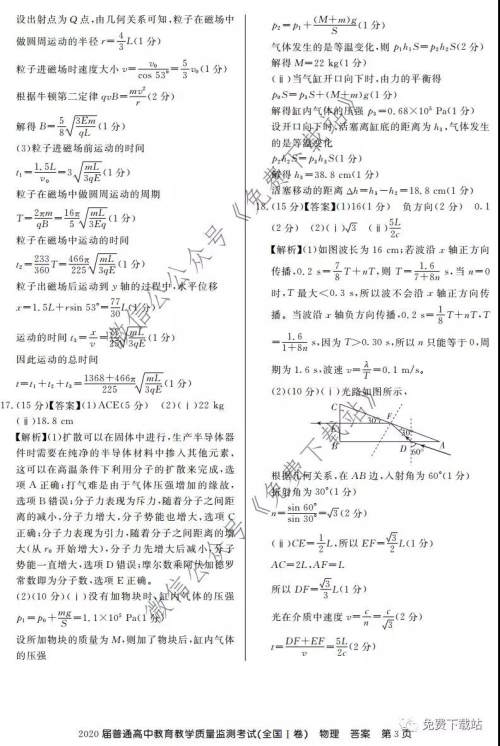 设出射点为Q点,由几何关系可知,粒子在磁场中
做圆周运动的半径 r=4/3L(1分)
粒子进磁场时速度大小 v=v₀/cos 53°=5/3v₀(1分)
根据牛顿第二定律 qvB=mv²/r(2分)
解得 B=5/8√(3Em/qL)(1分)
(3)粒子进磁场前运动的时间
t₁=1.5L/v₀=3√(mL/3qE)(1分)
粒子在磁场中做圆周运动的周期
T=2πm/qB=16π/5√(mL/3Eq)(1分)
粒子在磁场中运动的时间
t₂=233/360T=466π/225√(mL/3qE)(1分)
粒子出磁场后运动到 y 轴的过程中,水平位移
x=1.5L+rsin 53°=77/30L(1分)
运动的时间 t₃=x/v=√(mL/3qE)(1分)
因此运动的总时间
t=t₁+t₂+t₃=1368+466π/225√(mL/3qE)(1分)
17.(15分)【答案】(1)ACE(5分) (2)(ⅰ)22 kg
(ⅱ)18.8 cm
【解析】(1)扩散可以在固体中进行,生产半导体器
件时需要在纯净的半导体材料中掺入其他元素,
这可以在高温条件下利用分子的扩散来完成,选
项A正确;打气难是由于气体压强增加的缘故,
选项B错误;分子力表现为斥力,随着分子之间距
离的减小,分子力增大,分子势能也增大,选项C
正确;分子力表现为引力,随着分子之间距离的增
大(从 r₀ 开始增大),分子力先增大后减小,分子
势能一直增大,选项D错误;摩尔数乘阿伏加德罗
常数即为分子数,选项E正确。
(2)(10分)(ⅰ)没有加物块时,缸内气体的压强
p₁=p₀+mg/S=1.1×10⁵ Pa(1分)
设所加物块的质量为M,则加了物块后,缸内气体
的压强
p₂=p₁+(M+m)g/S(1分)
气体发生的是等温变化,则 p₁h₁S=p₂h₂S(2分)
解得 M=22 kg(1分)
(ⅱ)当气缸开口向下时,由力的平衡得
p₀S=p₃S+(M+m)g(1分)
解得缸内气体的压强 p₃=0.68×10⁵ Pa(1分)
设开口向下时,活塞离缸底的距离为 h₃,气体发生
的是等温变化
p₂h₂S=p₃h₃S(1分)
解得 h₃=38.8 cm(1分)
活塞移动的距离 Δh=h₃-h₂=18.8 cm(1分)
18.(15分)【答案】(1)16(1分) 负方向(2分) 0.1
(2分) (2)(ⅰ)√3 (ⅱ)5L/2c
【解析】(1)如图波长为16 cm;若波沿 x 轴正方向
传播,0.2 s=7/8T+nT,则 T=1.6/(7+8n) s,当 n=0
时,T 最大<0.3 s,所以波不会沿 x 轴正方向传
播。当波沿 x 轴负方向传播,0.2 s=1/8T+nT,T
=1.6/(1+8n) s,因为 T>0.30 s,所以 n 只能等于0,周
期为1.6 s,波速 v=λ/T=0.1 m/s。
(2)(10分)(ⅰ)光路如图所示,
C
F
E
30°
B
D
60°
A
根据几何关系,在AB边,入射角为60°(1分)
折射角为30°(1分)
n=sin 60°/sin 30°=√3(2分)
(ⅱ)CE=1/2L,所以 EF=√3/2L(1分)
AC=2L,AF=L
所以 DF=√3/3L(1分)
光在介质中速度 v=c/n=c/√3(2分)
t=(DF+EF)/v=5L/2c(2分)
2020届普通高中教育教学质量监测考试(全国Ⅰ卷) 物理 答案 第3页
微信公众号《免费下载站》
微信公众号《免费下载站》
免费下载站